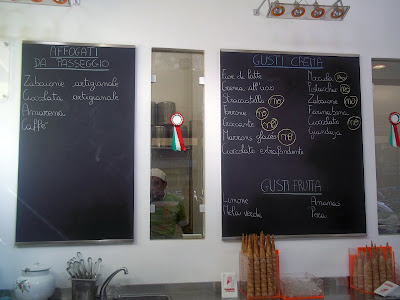 AFFOGATI
DA PASSEGGIO
Zabaione artigianale
Cioccolata artigianale
Amarena
Caffè
GUSTI CREMA
Fior di latte
Crema all'uovo
Stracciatella NO
Torrone NO
Croccante NO
Marrons glacés NO
Cioccolato extrafondente
Nocciola
Pistacchio NO
Zabaione NO
Panna
Cioccolato NO
Gianduja
GUSTI FRUTTA
Limone
Mela verde
Ananas
Pera